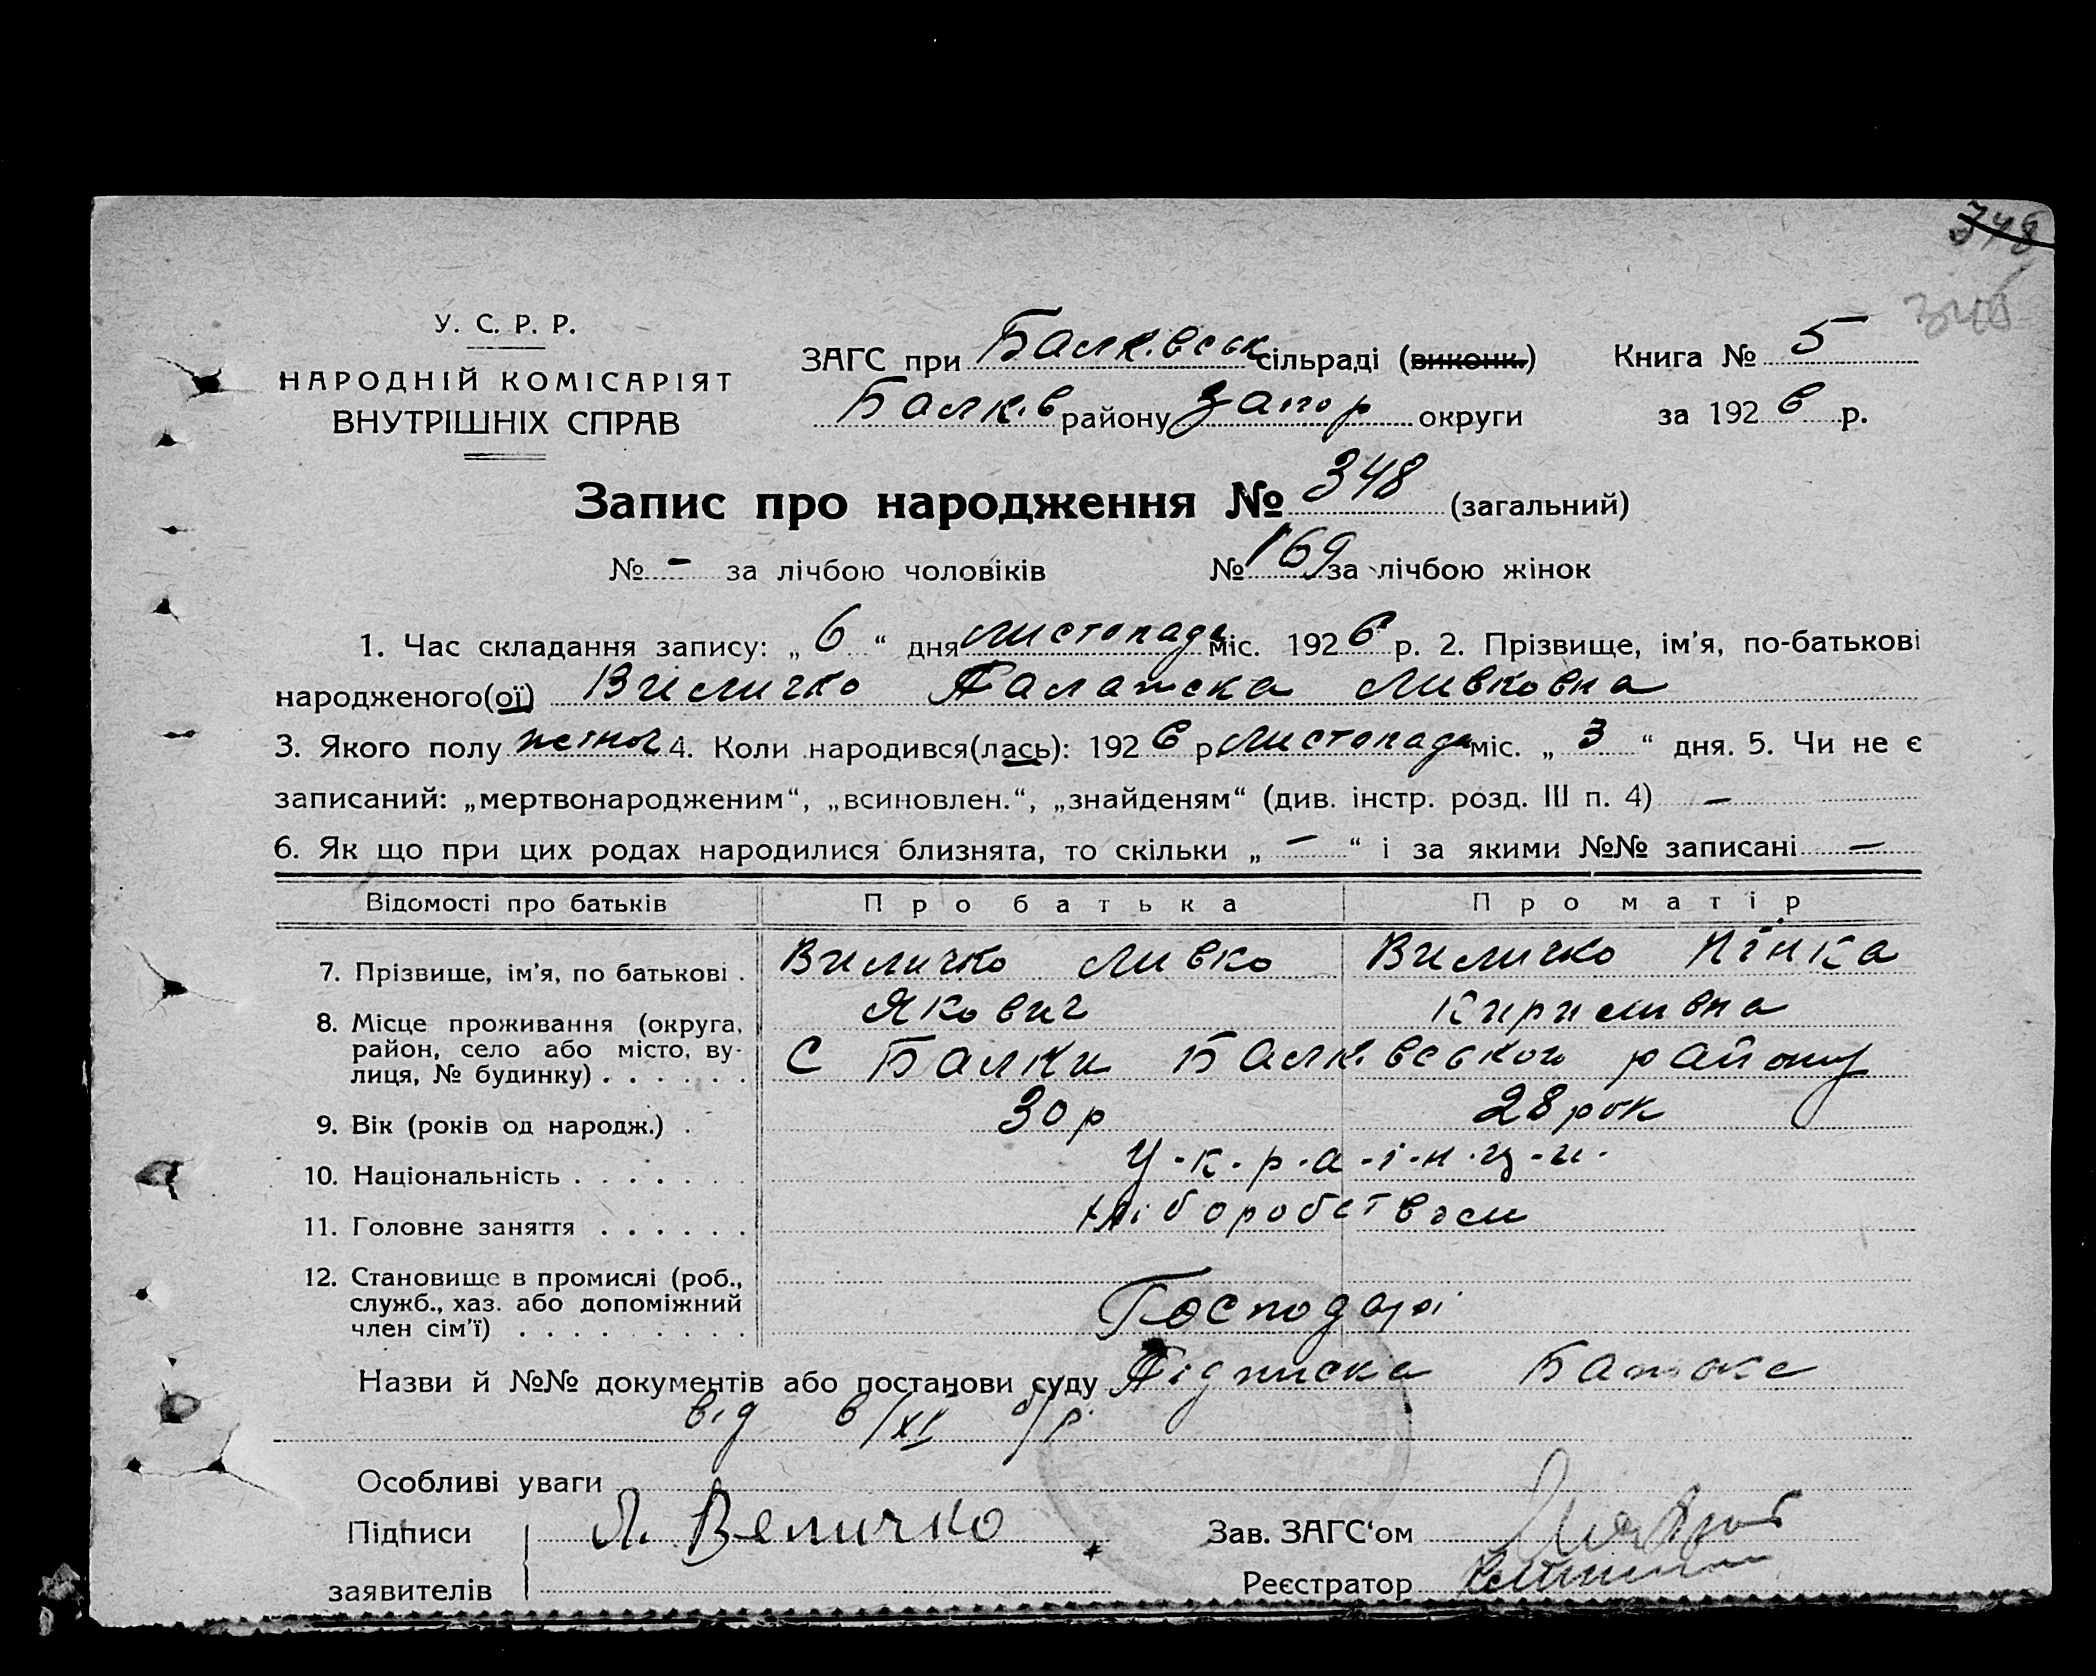 348
345
У. С. Р. Р.
НАРОДНІЙ КОМІСАРІЯТ
ВНУТРІШНІХ СПРАВ
ЗАГС при Балківськ сільраді (виконк.) Книга № 5
Балків району Запор округи за 1926 р.
Запис про народження № 348 (загальний)
№ - за лічбою чоловіків № 169 за лічбою жінок
1. Час складання запису: „ 6 “ дня листопада міс. 1926 р. 2. Прізвище, ім'я, по-батькові
народженого(ої) Виличко Палажка Ливковна
3. Якого полу жіноч 4. Коли народився(лась): 1926 р листопада міс. „ 3 “ дня. 5. Чи не є
записаний: „мертвонародженим“, „всиновлен.“, „знайденям“ (див. інстр. розд. III п. 4) —
6. Як що при цих родах народилися близнята, то скільки „ — “ і за якими №№ записані —
Відомості про батьків Про батька Про матір
7. Прізвище, ім'я, по батькові . Виличко Ливко Виличко Кінка
Якович Кириливна
8. Місце проживання (округа,
район, село або місто, ву-
лиця, № будинку) . . . . . . С Балки Балківського району
9. Вік (років од народж.) . 30 р 28 рок
10. Національність . . . . . . . У-к-р-а-ї-н-ц-и.
11. Головне заняття . . . . . . хліборобством
12. Становище в промислі (роб.,
служб., хаз. або допоміжний
член сім'ї) . . . . . . . . . Господарі
Назви й №№ документів або постанови суду Підписка Батька
від 6/XI б/р.
Особливі уваги
Підписи Л. Величко Зав. ЗАГС'ом
заявителів Реєстратор